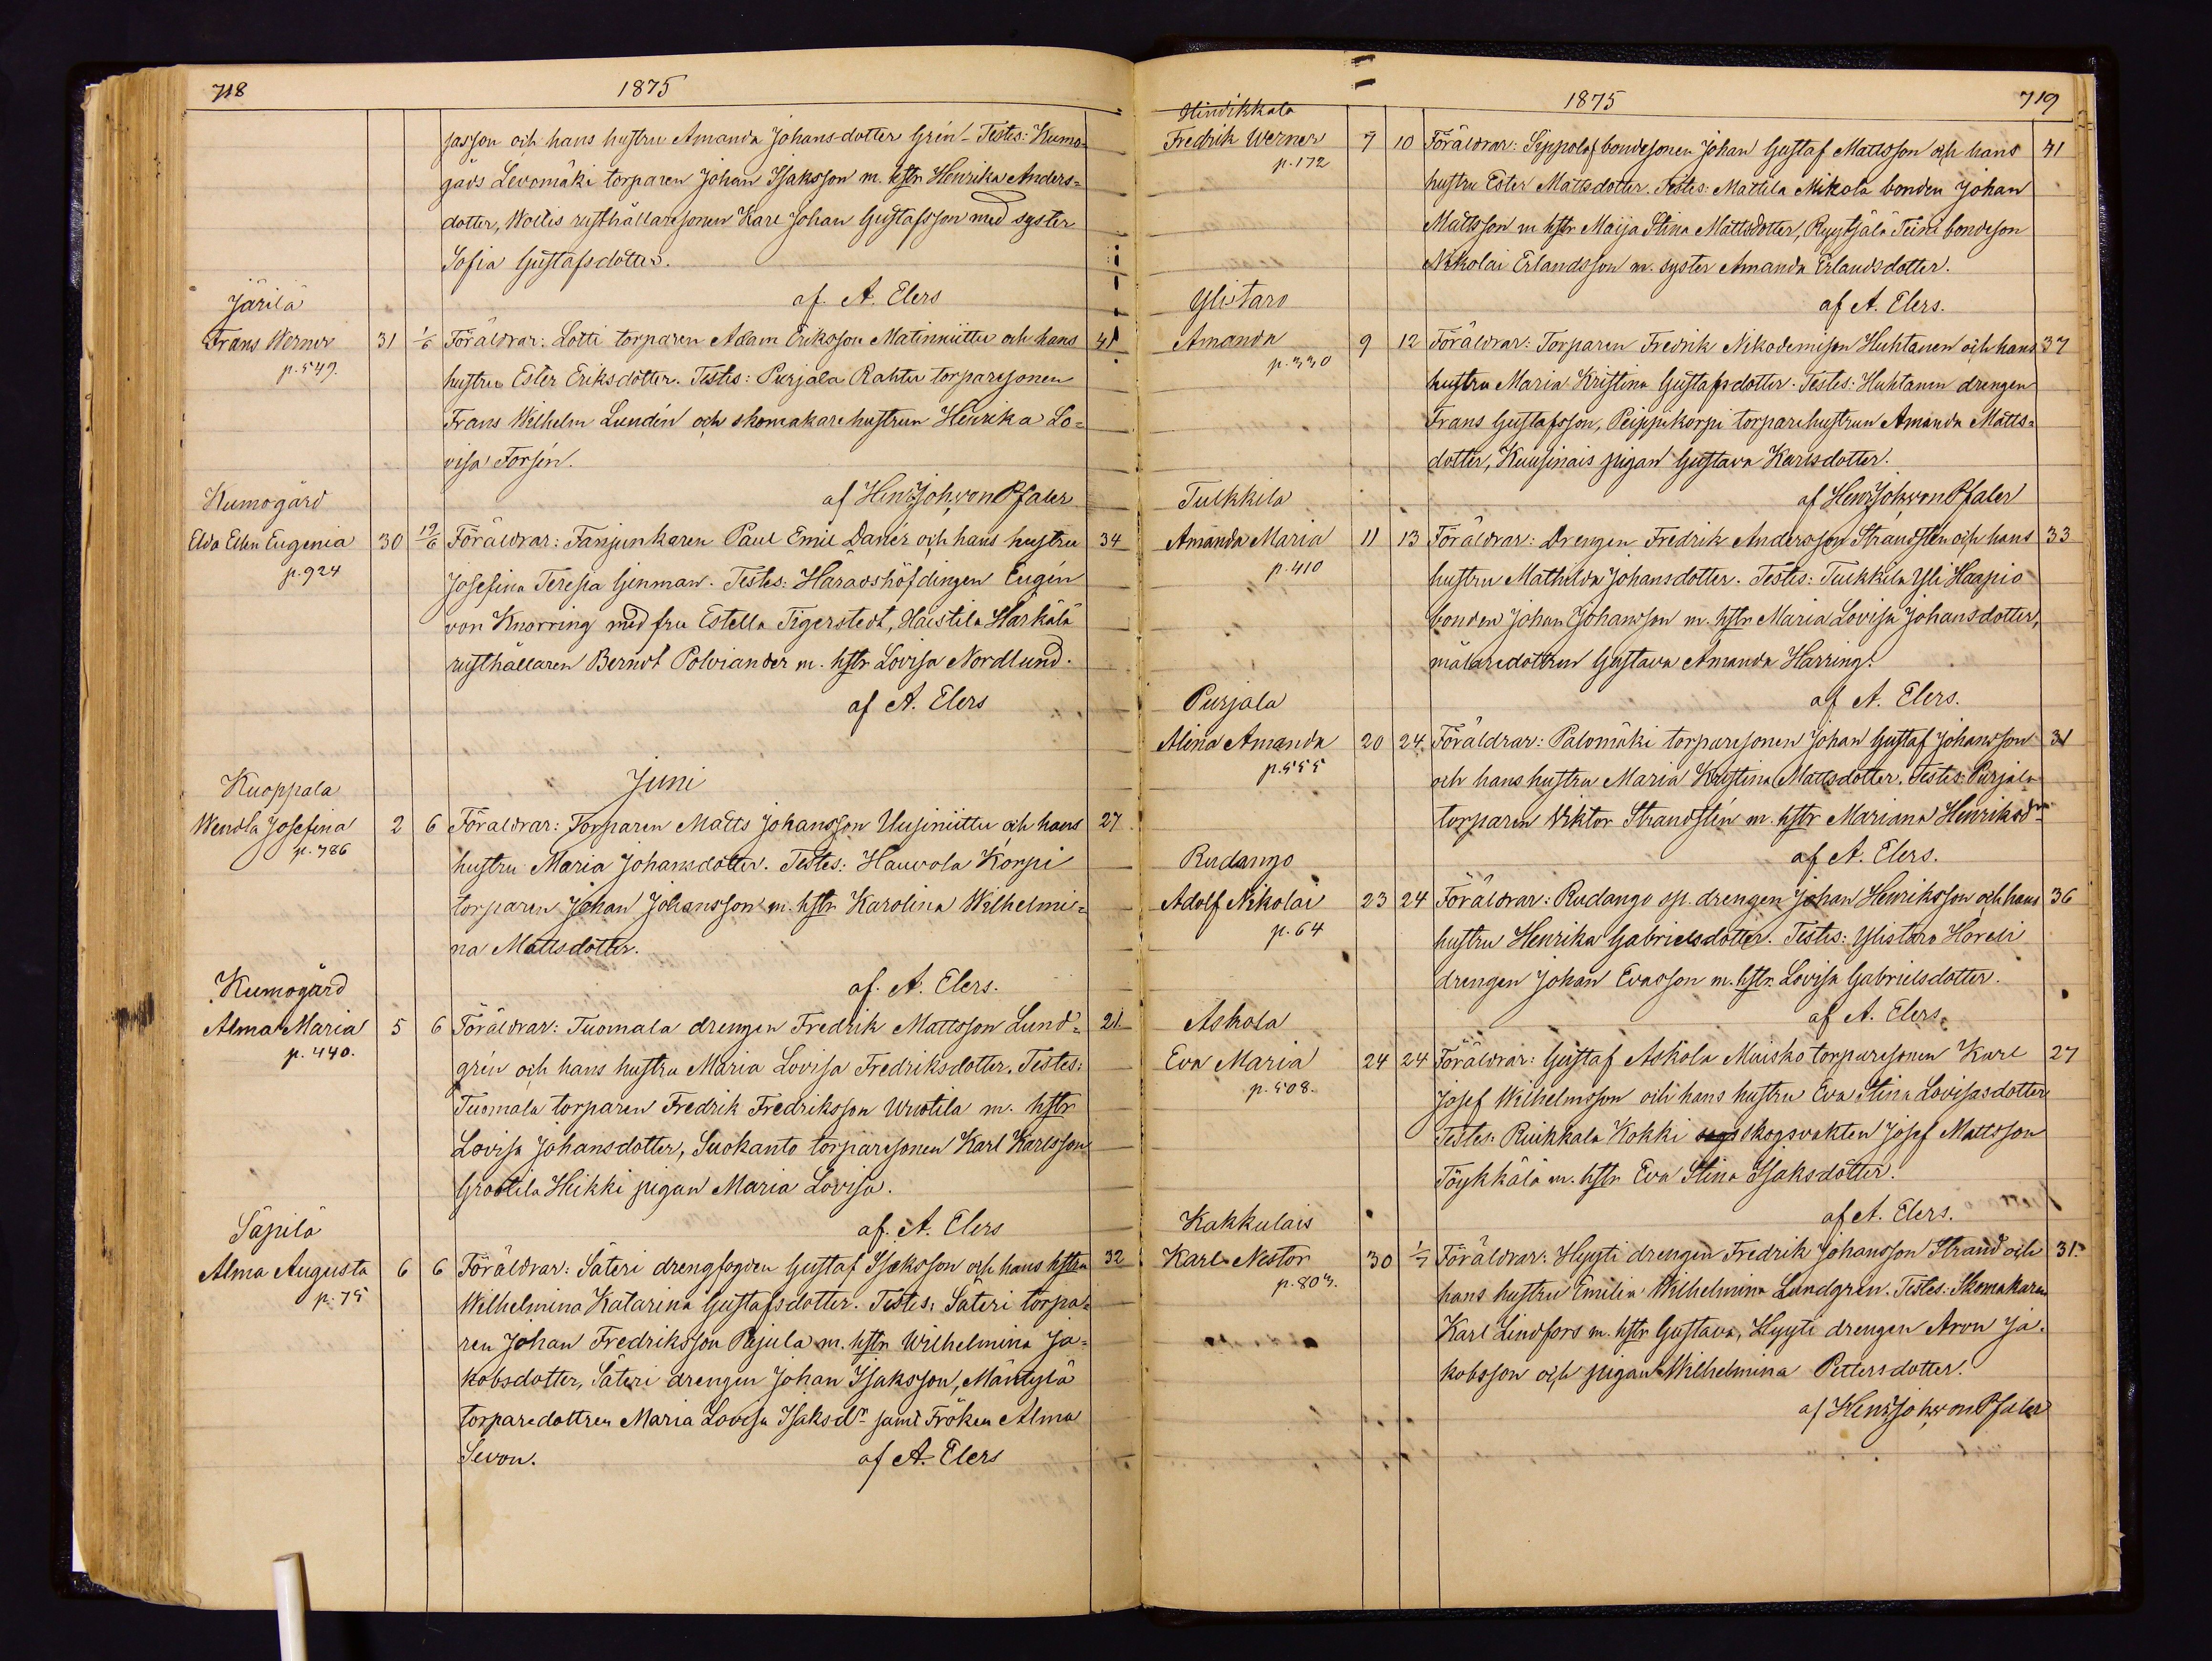 718
1875
jasson och hans hustru Amanda Johansdotter Grén. Testes: Kumo-
gårds Levomäki torparen Johan Isaksson m. hstr Henrika Anders-
dotter, Wollis rusthållaresonen Karl Johan Gustafsson med syster
Sofia Gustafsdotter.
af. A. Elers
Järilä
Frans Werner 31 1/6 Föräldrar: Lotti torparen Adam Eriksson Matinniittu och hans 41
p. 549.
hustru Ester Eriksdotter. Testes: Purjala Rahtu torparesonen
Frans Wilhelm Lundén och skomakarehustrun Henrika Lo-
visa Forsén.
af Henr Joh von Pfaler
Kumogård
Elda Ellen Eugenia 30 19/6 Föräldrar: Fanjunkaren Paul Emil Danér och hans hustru 34
p. 924
Josefina Teresia Genman. Testes: Häradshöfdingen Eugén
von Knorring med fru Estella Tigerstedt, Haistila Härkälä
rusthållaren Berndt Polviander m. hstr Lovisa Nordlund.
af A. Elers
Juni
Kuoppala
Wendla Josefina 2 6 Föräldrar: Torparen Matts Johansson Uusiniittu och hans 27
p. 786
hustru Maria Johansdotter. Testes: Hauvola Korpi
torparen Johan Johansson m. hstr Karolina Wilhelmi-
na Mattsdotter.
af. A. Elers.
Kumogård
Alma Maria 5 6 Föräldrar: Tuomala drengen Fredrik Mattsson Lund- 21
p. 440.
grén och hans hustru Maria Lovisa Fredriksdotter. Testes:
Tuomala torparen Fredrik Fredriksson Wuotila m. hstr
Lovisa Johansdotter, Suokanto torparesonen Karl Karlsson
Grootila Heikki pigan Maria Lovisa.
af. A. Elers
Säpilä
Alma Augusta 6 6 Föräldrar: Säteri drengfogden Gustaf Isaksson och hans hstru 32
p. 75
Wilhelmina Katarina Gustafsdotter. Testes: Säteri torpa-
ren Johan Fredriksson Pajula m. hstr Wilhelmina Ja-
kobsdotter, Säteri drengen Johan Isaksson, Mäntylä
torparedottren Maria Lovisa Isaksdr samt Fröken Alma
Sevon. af A. Elers
1875
719
Hindikkala
Fredrik Werner 7 10 Föräldrar: Sippola bondesonen Johan Gustaf Mattsson och hans 41
p. 172
hustru Ester Mattsdotter. Testes: Mattila Mikola bonden Johan
Mattsson m hstr Maija Stina Mattsdotter, Ryytsälä Teiri bondeson
Nikolai Erlandsson m. syster Amanda Erlandsdotter.
af A. Elers.
Ylistaro
Amanda 9 12 Föräldrar: Torparen Fredrik Nikodemison Huhtanen och hans 37
p. 330
hustru Maria Kristina Gustafsdotter. Testes: Huhtanen drengen
Frans Gustafsson, Peippikorpi torparehustrun Amanda Matts-
dotter, Kuusinais pigan Gustava Karlsdotter.
af Henr Joh von Pfaler
Tulkkila
Amanda Maria 11 13 Föräldrar: Drengen Fredrik Andersson Strandstén och hans 33
p. 410
hustru Mathilda Johansdotter. Testes: Tulkkila Yli Haapio
bonden Johan Johansson m. hstr Maria Lovisa Johansdotter,
målaredottren Gustava Amanda Harring.
af A. Elers.
Purjala
Alina Amanda 20 24. Föräldrar: Palomäki torparesonen Johan Gustaf Johansson 31
p. 555
och hans hustru Maria Kristina Mattsdotter. Testes: Purjala
torparen Viktor Strandstén m. hstr Mariana Henriksdr
af A. Elers.
Rudango
Adolf Nikolai 23 24 Föräldrar: Rudango sp. drengen Johan Henriksson och hans 36
p. 64
hustru Henrika Gabrielsdotter. Testes: Ylistaro Horeli
drengen Johan Evasson m. hstr. Lovisa Gabrielsdotter.
af A. Elers
Askola
Eva Maria 24 24 Föräldrar: Gustaf Askola Muisko torparesonen Karl 27
p. 508.
Josef Wilhelmsson och hans hustru Eva Stina Lovisasdotter
Testes: Ruikkala Kokki skogsvakten Josef Mattsson
Töykkälä m. hstr Eva Stina Isaksdotter.
af A. Elers.
Kakkulais
Karl Nestor 30 1/7 Föräldrar: Hyyti drengen Fredrik Johansson Strand och 31.
p. 803.
hans hustru Emilia Wilhelmina Lundgren. Testes: Skomakaren
Karl Lindfors m. hstr Gustava, Hyyti drengen Aron Ja-
kobsson och pigan Wilhelmina Pettersdotter.
af Henr Joh von Pfaler